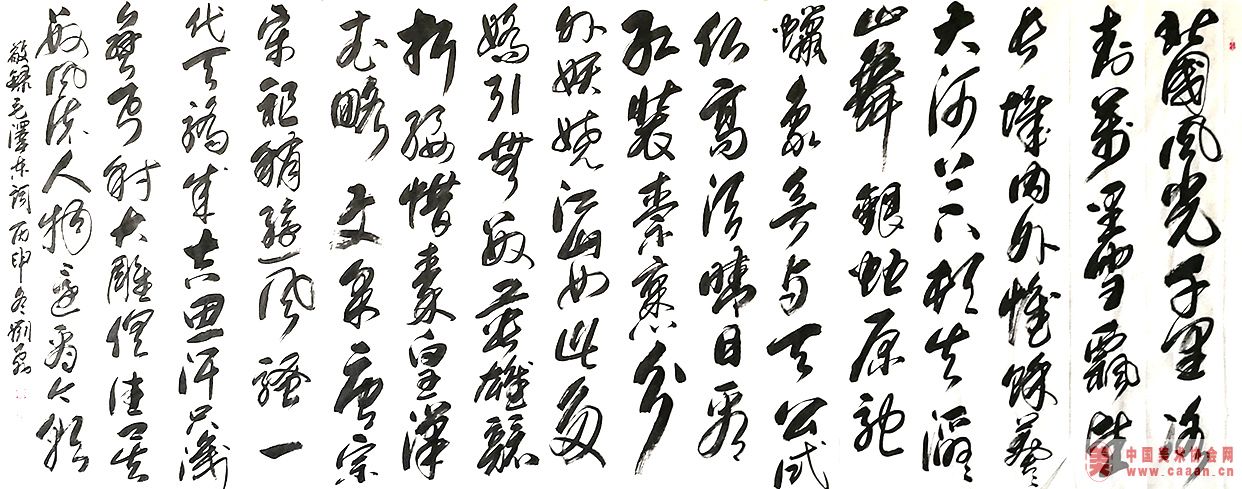 北國風光千里冰
封萬里雪飄望
長城內外惟餘莽莽
大河上下頓失滔滔
山舞銀蛇原馳
蠟象欲與天公試
比高須晴日看
紅裝素裹分
外妖嬈江山如此多
嬌引無數英雄競
折腰惜秦皇漢
武略文采唐宗
宋祖稍遜風騷一
代天驕成吉思汗只識
彎弓射大雕俱往矣
數風流人物還看今朝
敬錄毛澤東詞丙申冬劉
中国美术协会网
www.caaan.cn